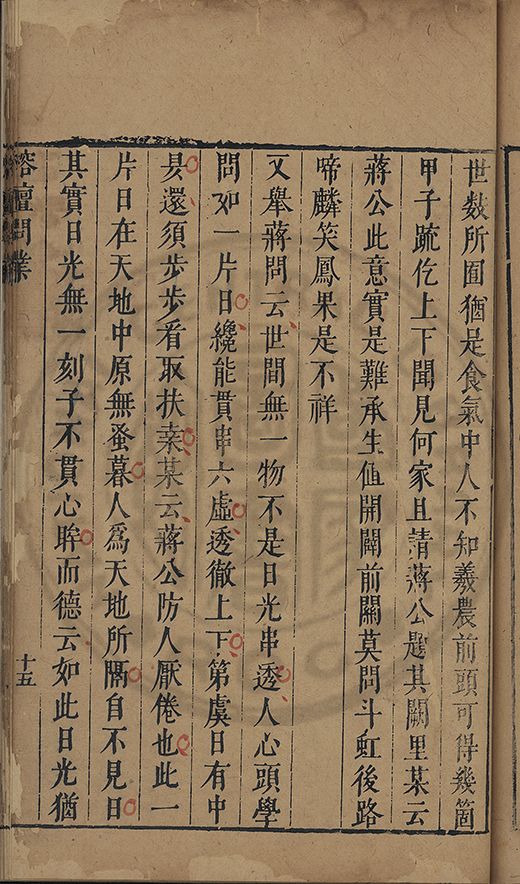 世數所囿猶是食氣中人不知羲農前頭可得幾箇
甲子䟽仡上下聞見何家且請蔣公題其闕里某云
蔣公此意實是難承生值開闢前關莫問斗虹後路
啼麟笑鳳果是不祥
又舉蔣問云世間無一物不是日光串透人心頭學
問如一片日纔能貫串六虛透徹上下第虞日有中
昃還須步步看取扶桒某云蔣公防人厭倦也此一
片日在天地中原無蚤暮人爲天地所隔自不見日
其實日光無一刻子不貫心眸而德云如此日光猶
榕壇問業
十五